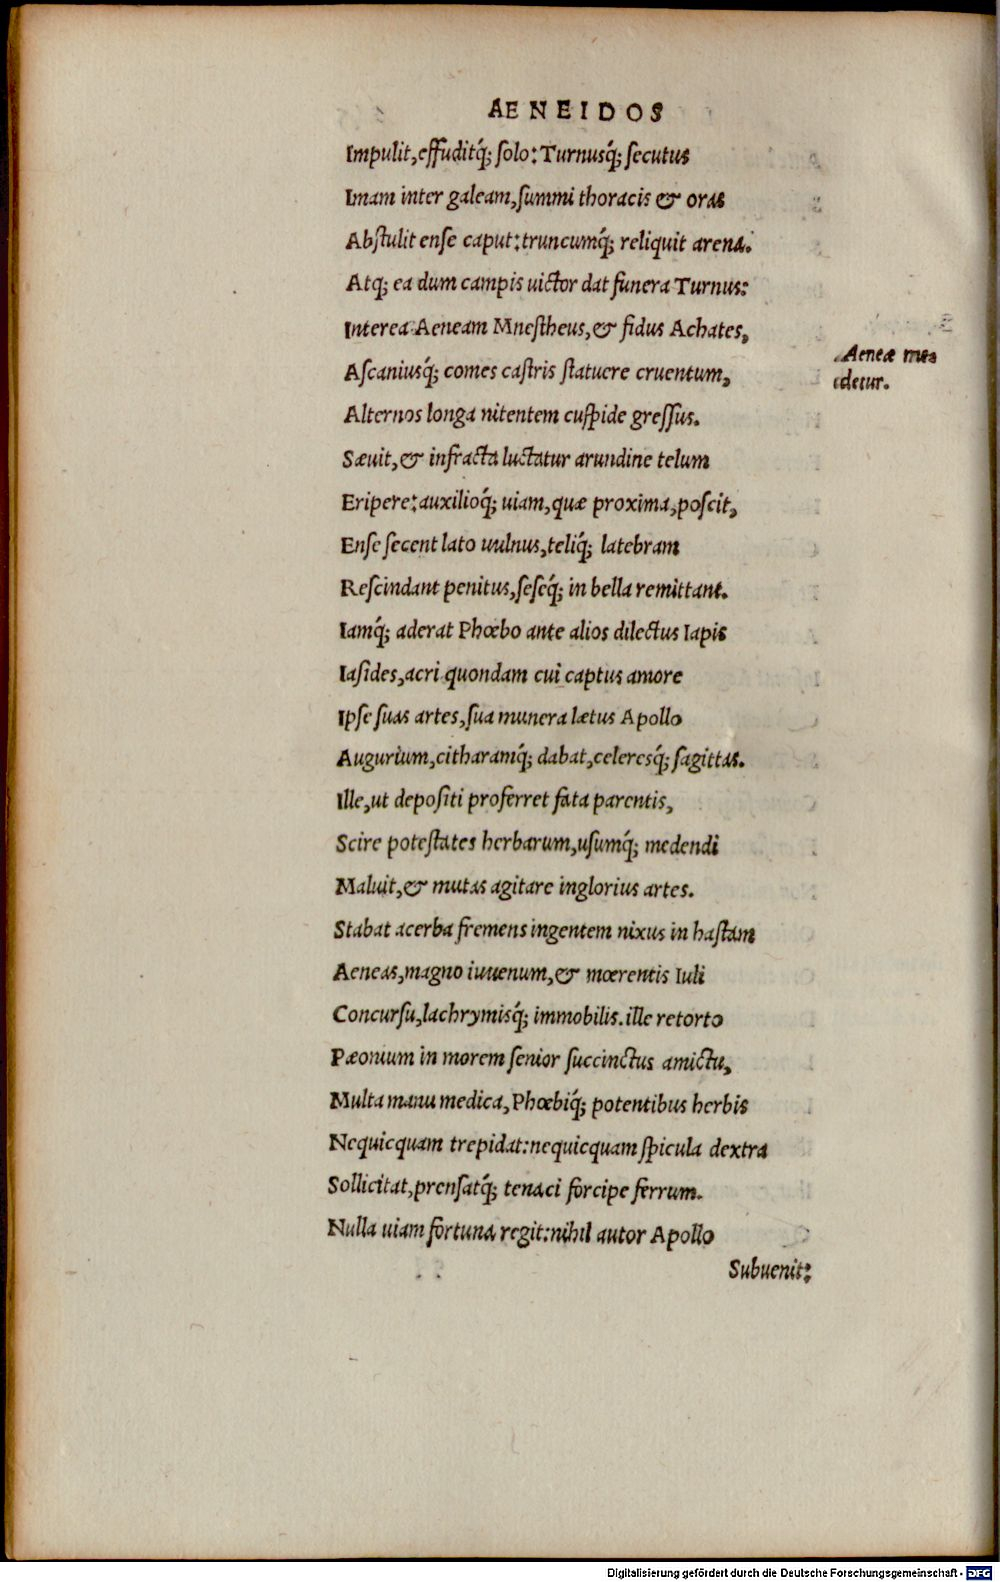 AENEIDOS
Impulit, effuditq́; solo: Turnusq́; secutus
Imam inter galeam, summi thoracis & oras
Abstulit ense caput: truncumq́; reliquit arena.
Atq; ea dum campis uictor dat funera Turnus:
Interea Aeneam Mnestheus, & fidus Achates,
Aeneæ me=
Ascaniusq́; comes castris statuere cruentum,
detur.
Alternos longa nitentem cuspide gressus.
Sæuit, & infracta luctatur arundine telum
Eripere: auxilioq́; uiam, quæ proxima, poscit,
Ense secent lato uulnus, teliq́; latebram
Rescindant penitus, seseq́; in bella remittant.
Iamq́; aderat Phœbo ante alios dilectus Iapis
Iasides, acri quondam cui captus amore
Ipse suas artes, sua munera lætus Apollo
Augurium, citharamq́; dabat, celeresq́; sagittas.
Ille, ut depositi proferret fata parentis,
Scire potestates herbarum, usumq́; medendi
Maluit, & mutas agitare inglorius artes.
Stabat acerba fremens ingentem nixus in hastam
Aeneas, magno iuuenum, & mœrentis Iuli
Concursu, lachrymisq́; immobilis. ille retorto
Pæonium in morem senior succinctus amictu,
Multa manu medica, Phœbiq́; potentibus herbis
Nequicquam trepidat: nequicquam spicula dextra
Sollicitat, prensatq́; tenaci forcipe ferrum.
Nulla uiam fortuna regit: nihil autor Apollo
Subuenit:
Digitalisierung gefördert durch die Deutsche Forschungsgemeinschaft - DFG